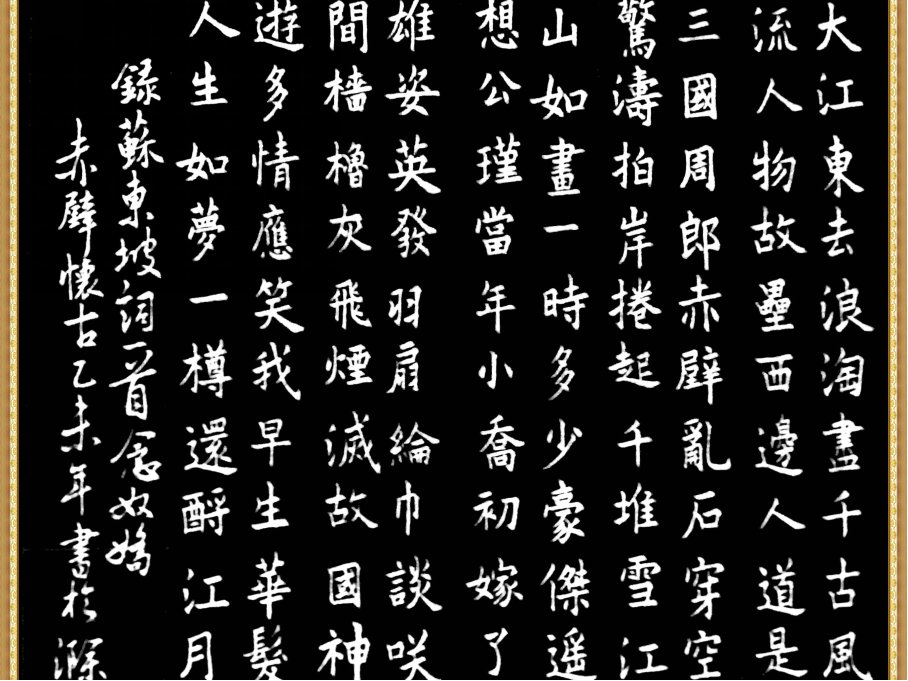 大江東去浪淘盡千古風
流人物故壘西邊人道是
三國周郎赤壁亂石穿空
驚濤拍岸捲起千堆雪江
山如畫一時多少豪傑遥
想公瑾當年小喬初嫁了
雄姿英發羽扇綸巾談咲
間檣櫓灰飛煙滅故國神
遊多情應笑我早生華髮
人生如夢一樽還酹江月
録蘇東坡詞一首念奴嬌
赤壁懷古乙未年書於滁